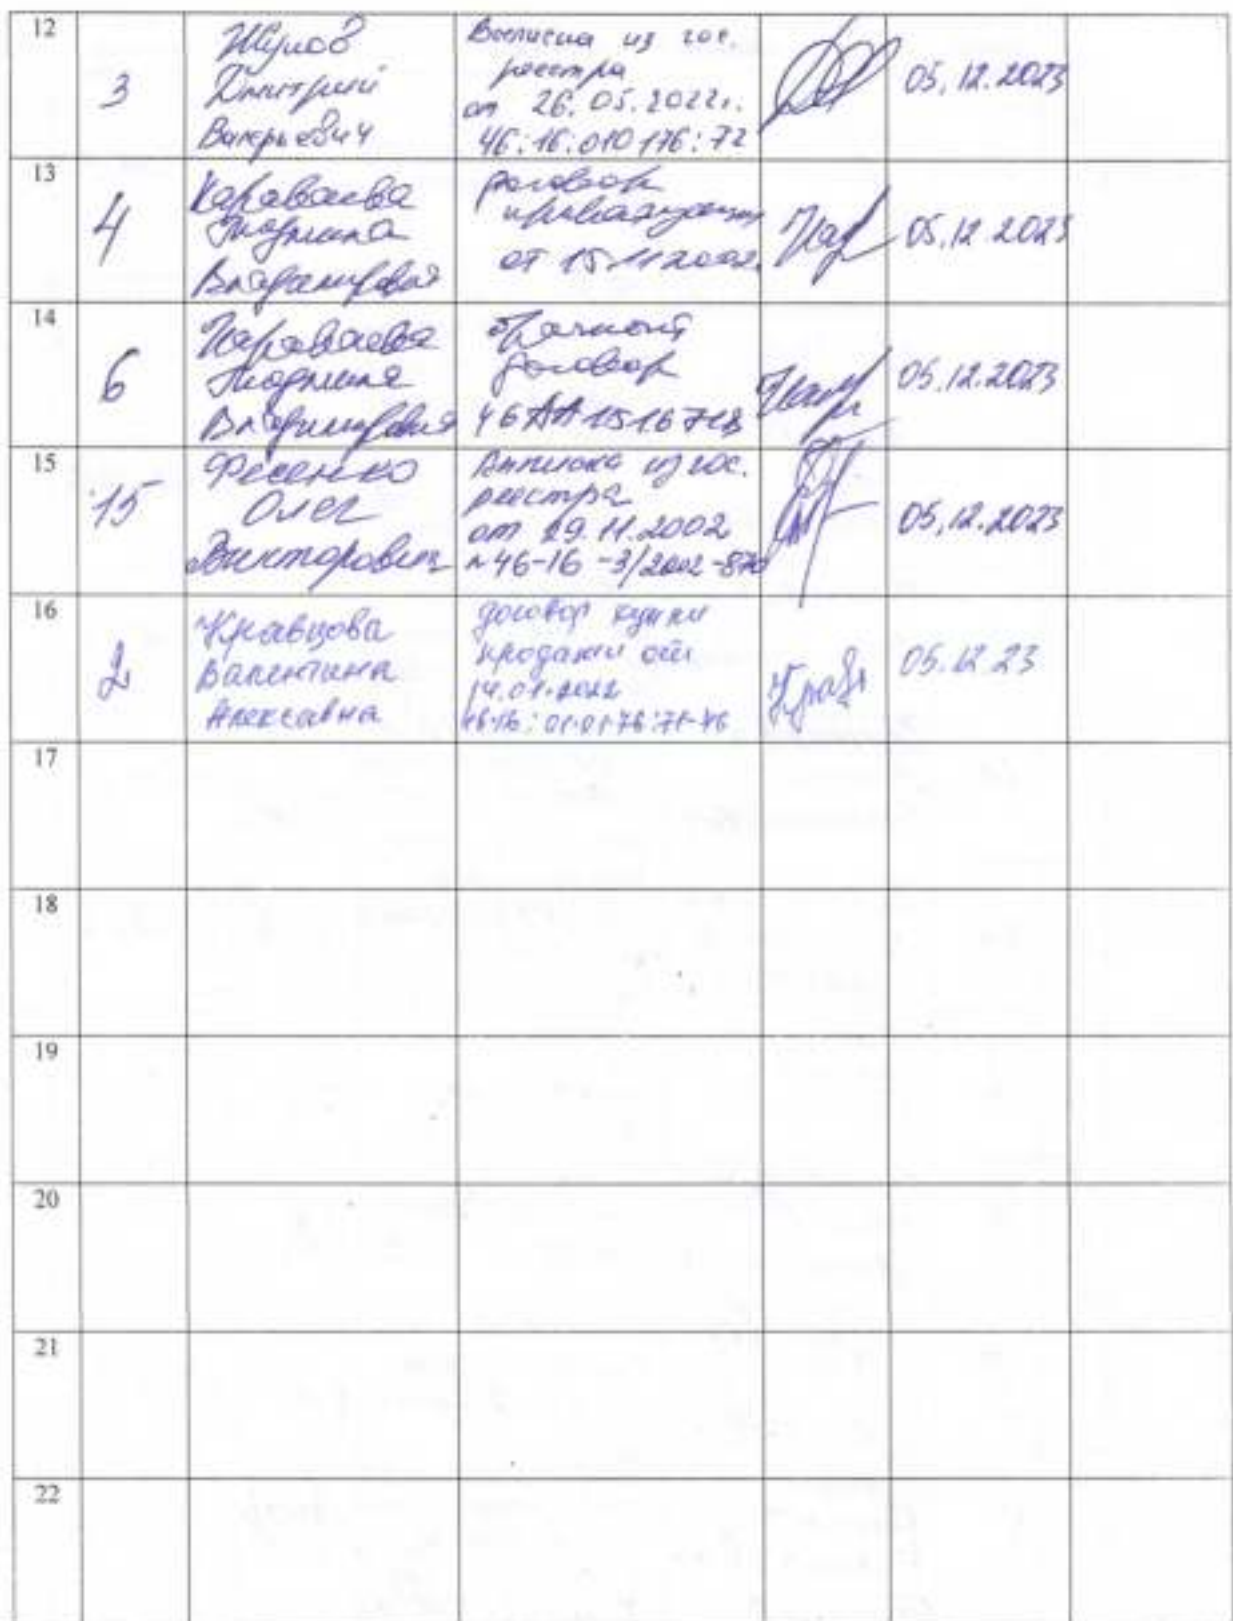 12
3
Жулов
Дмитрий
Валерьевич
Выписка из гос.
реестра
от 26.05.2022г.
46:16:010176:72
05.12.2023
13
4
Караваева
Людмила
Владимировна
договор
приватизации
от 15.11.2002
05.12.2023
14
6
Караваева
Людмила
Владимировна
договор
46АА1516718
05.12.2023
15
15
Фесенко
Олег
Викторович
Выписка из гос.
реестра
от 29.11.2002
№46-16-3/2002-870
05.12.2023
16
2
Кравцова
Валентина
Алексеевна
договор купли
продажи от
14.01.2022
05.12.23
17
18
19
20
21
22